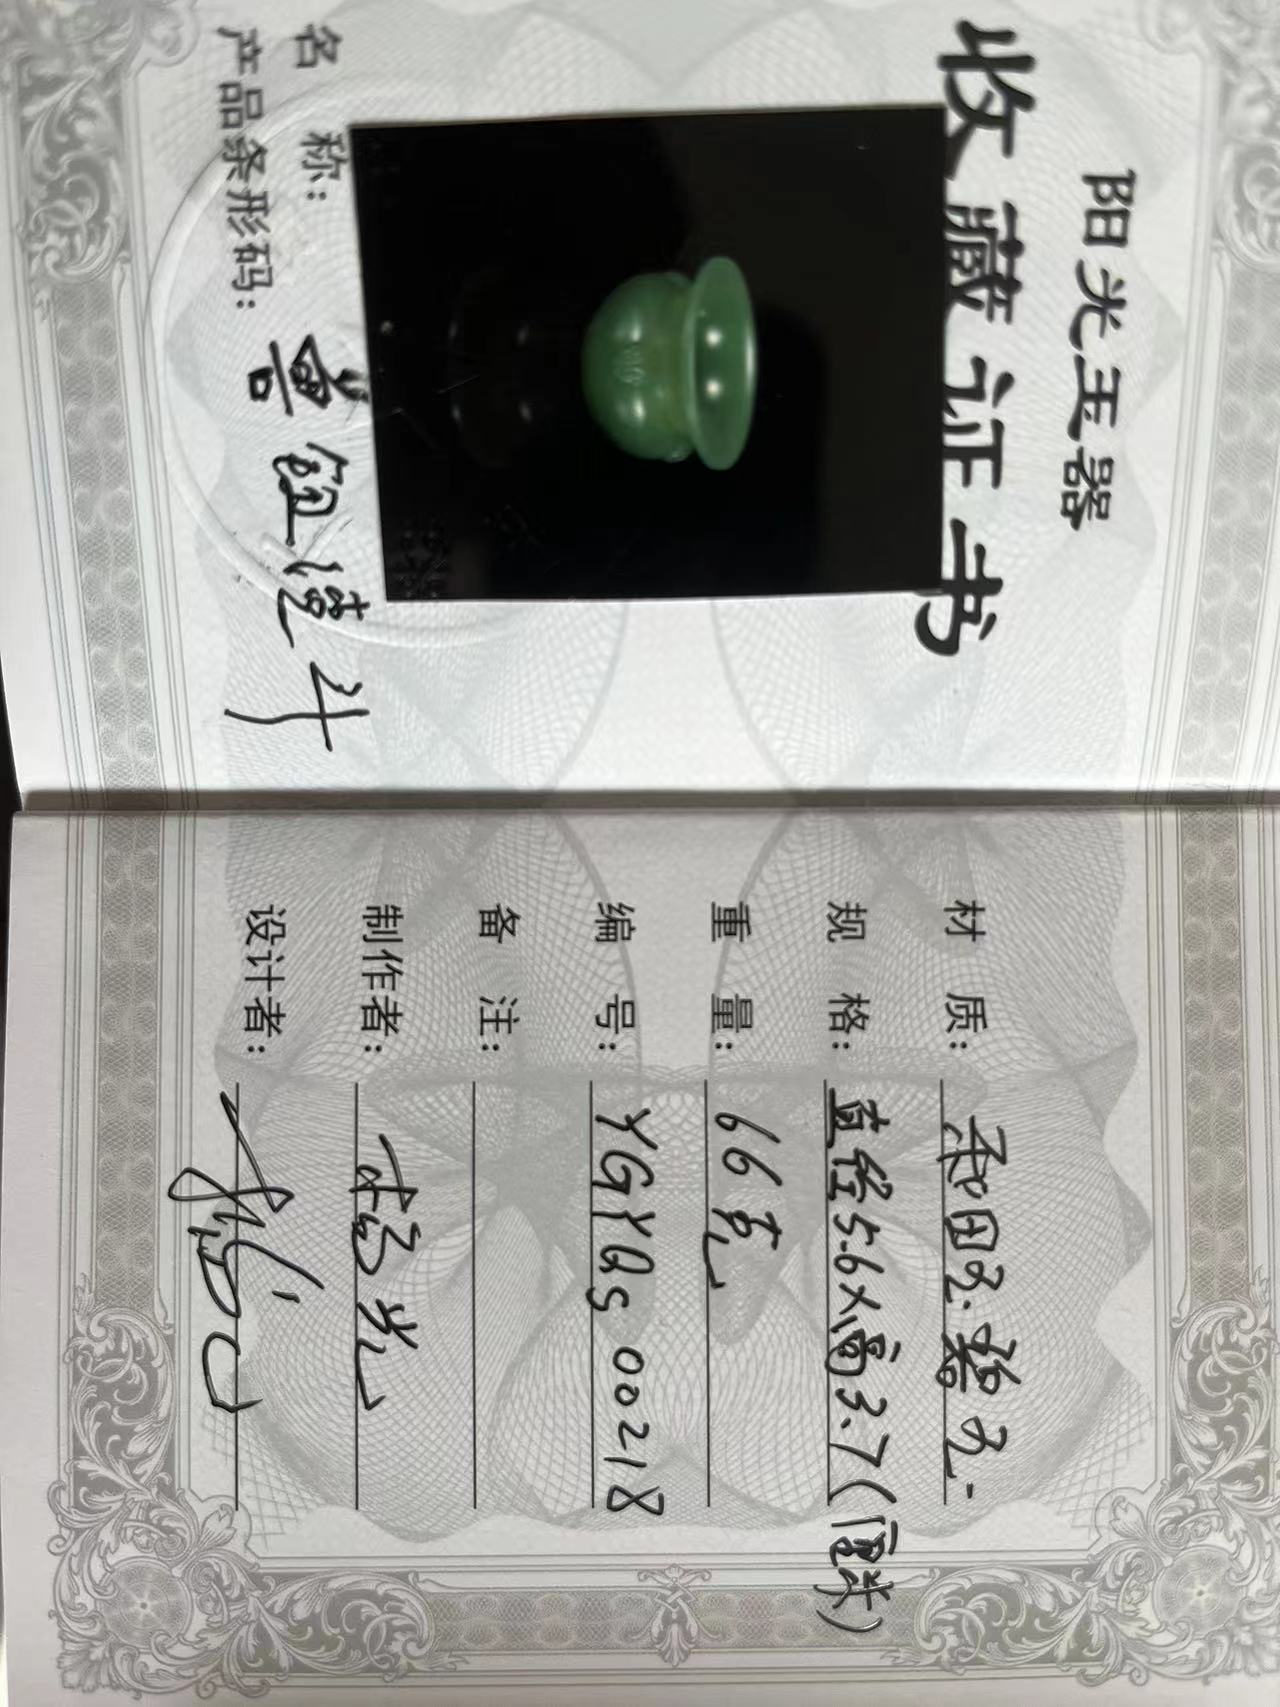 阳光玉器
收藏证书
名 称：
产品条形码：
斗
材 质： 和田玉.碧玉.
规 格： 直径5.6X高3.7(厘米)
重 量： 66克
编 号： YGYQS00218
备 注：
制作者： 杨光
设计者：